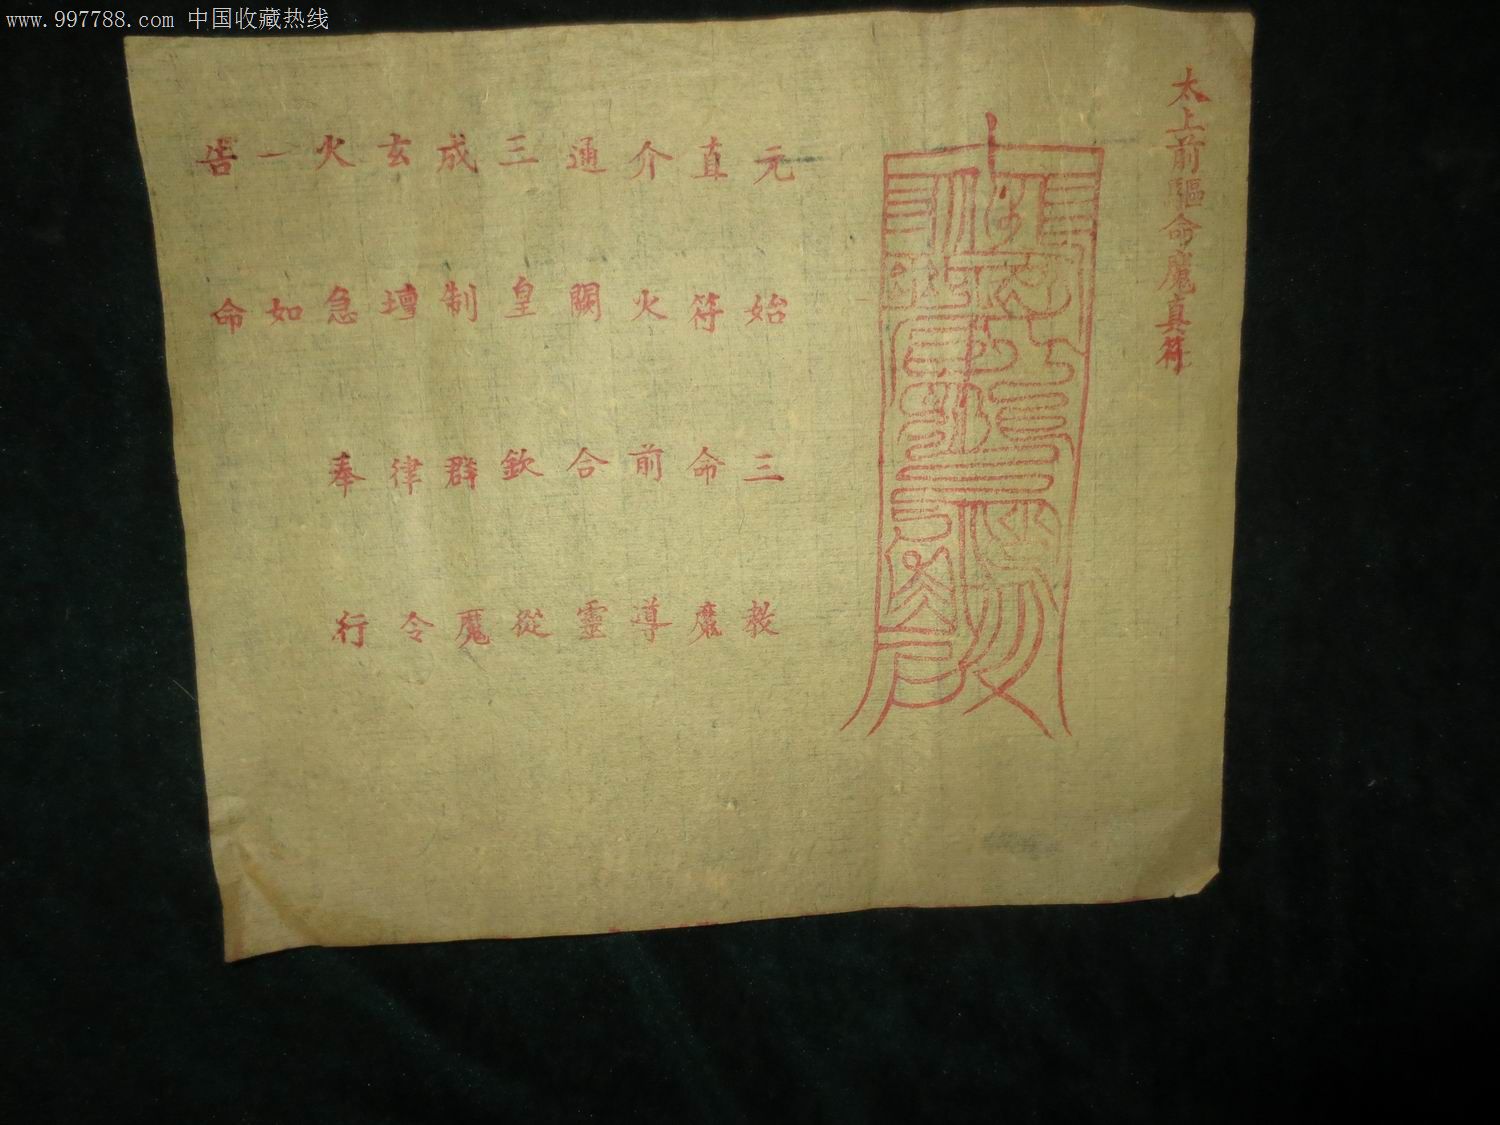 www.997788.com 中国收藏热线
太上前驅命魔真符
元始三教
直符命魔
介火前導
通關合靈
三皇欽從
成制群魔
玄壇律令
火急奉行
一如
告命